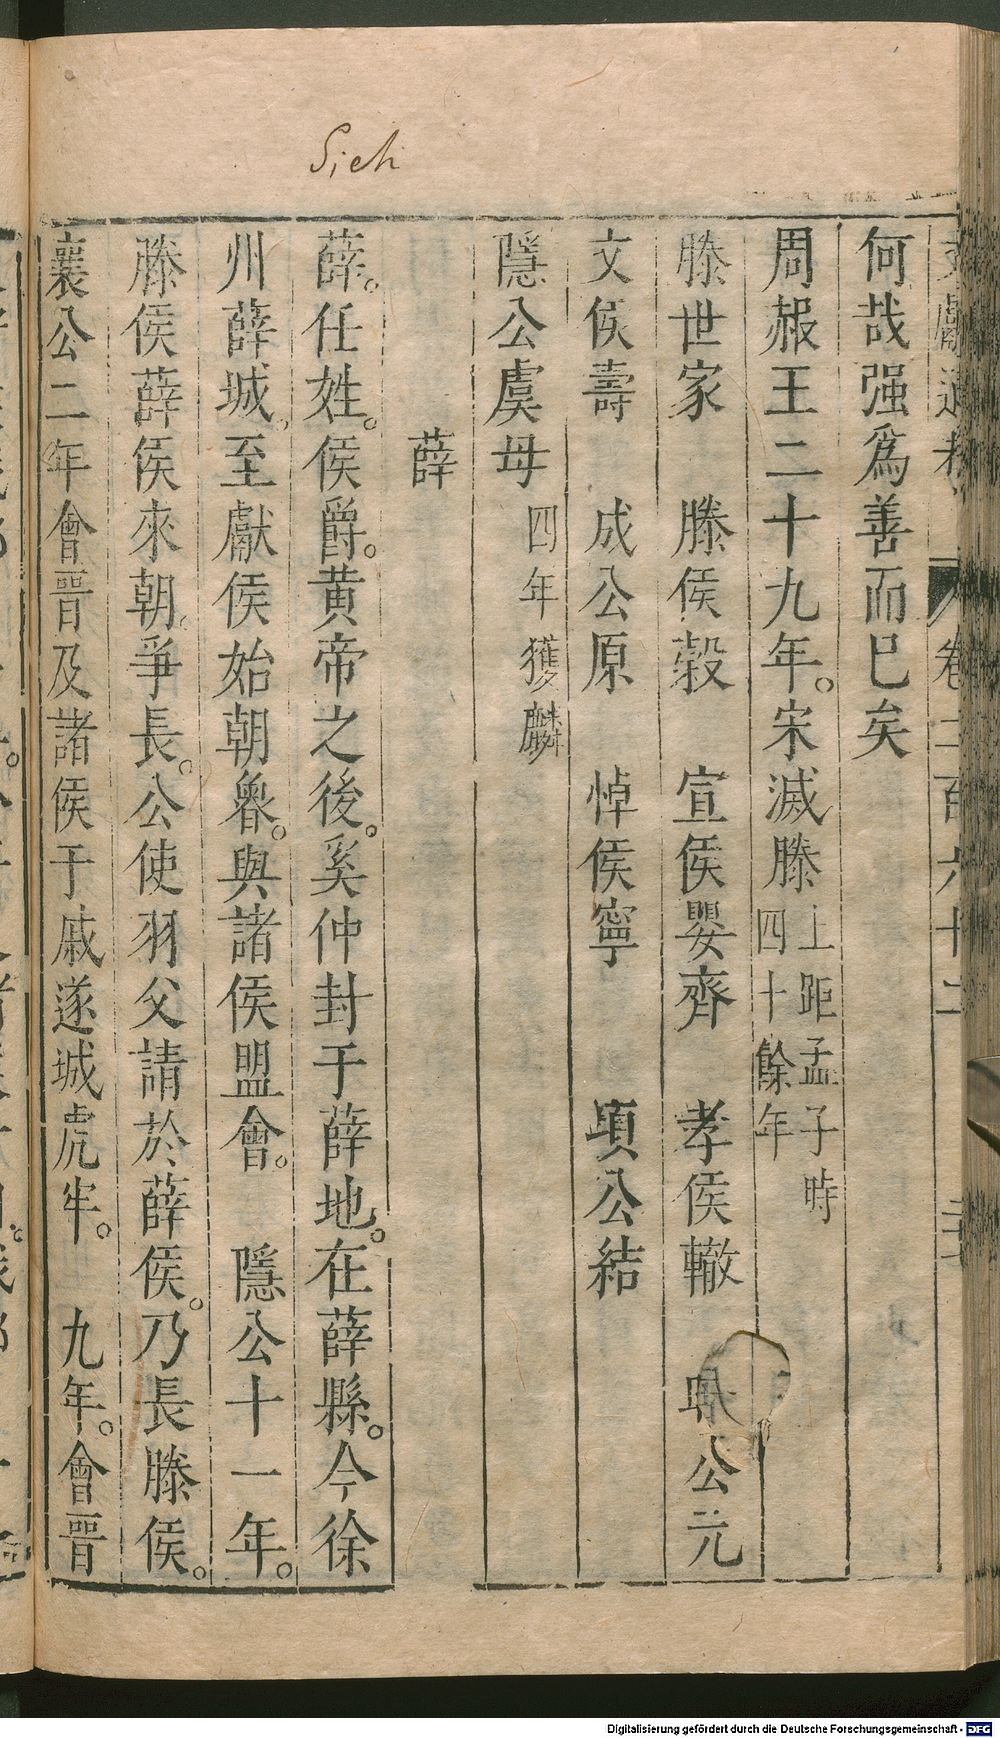 Sieh
何哉强為善而已矣
周赧王二十九年。宋滅滕上距孟子時四十餘年
滕世家　滕侯穀　宣侯嬰齊　孝侯轍　昭公元
文侯壽　成公原　悼侯寧　頃公結
隱公虞毋四年獲麟
薛
薛。任姓。侯爵。黄帝之後。奚仲封于薛地。在薛縣。今徐
州薛城。至獻侯始朝魯。與諸侯盟會。　隱公十一年。
滕侯薛侯來朝。爭長。公使羽父請於薛侯。乃長滕侯。
襄公二年會晋及諸侯于戚遂城虎牢。　九年。會晋
Digitalisierung gefördert durch die Deutsche Forschungsgemeinschaft - DFG